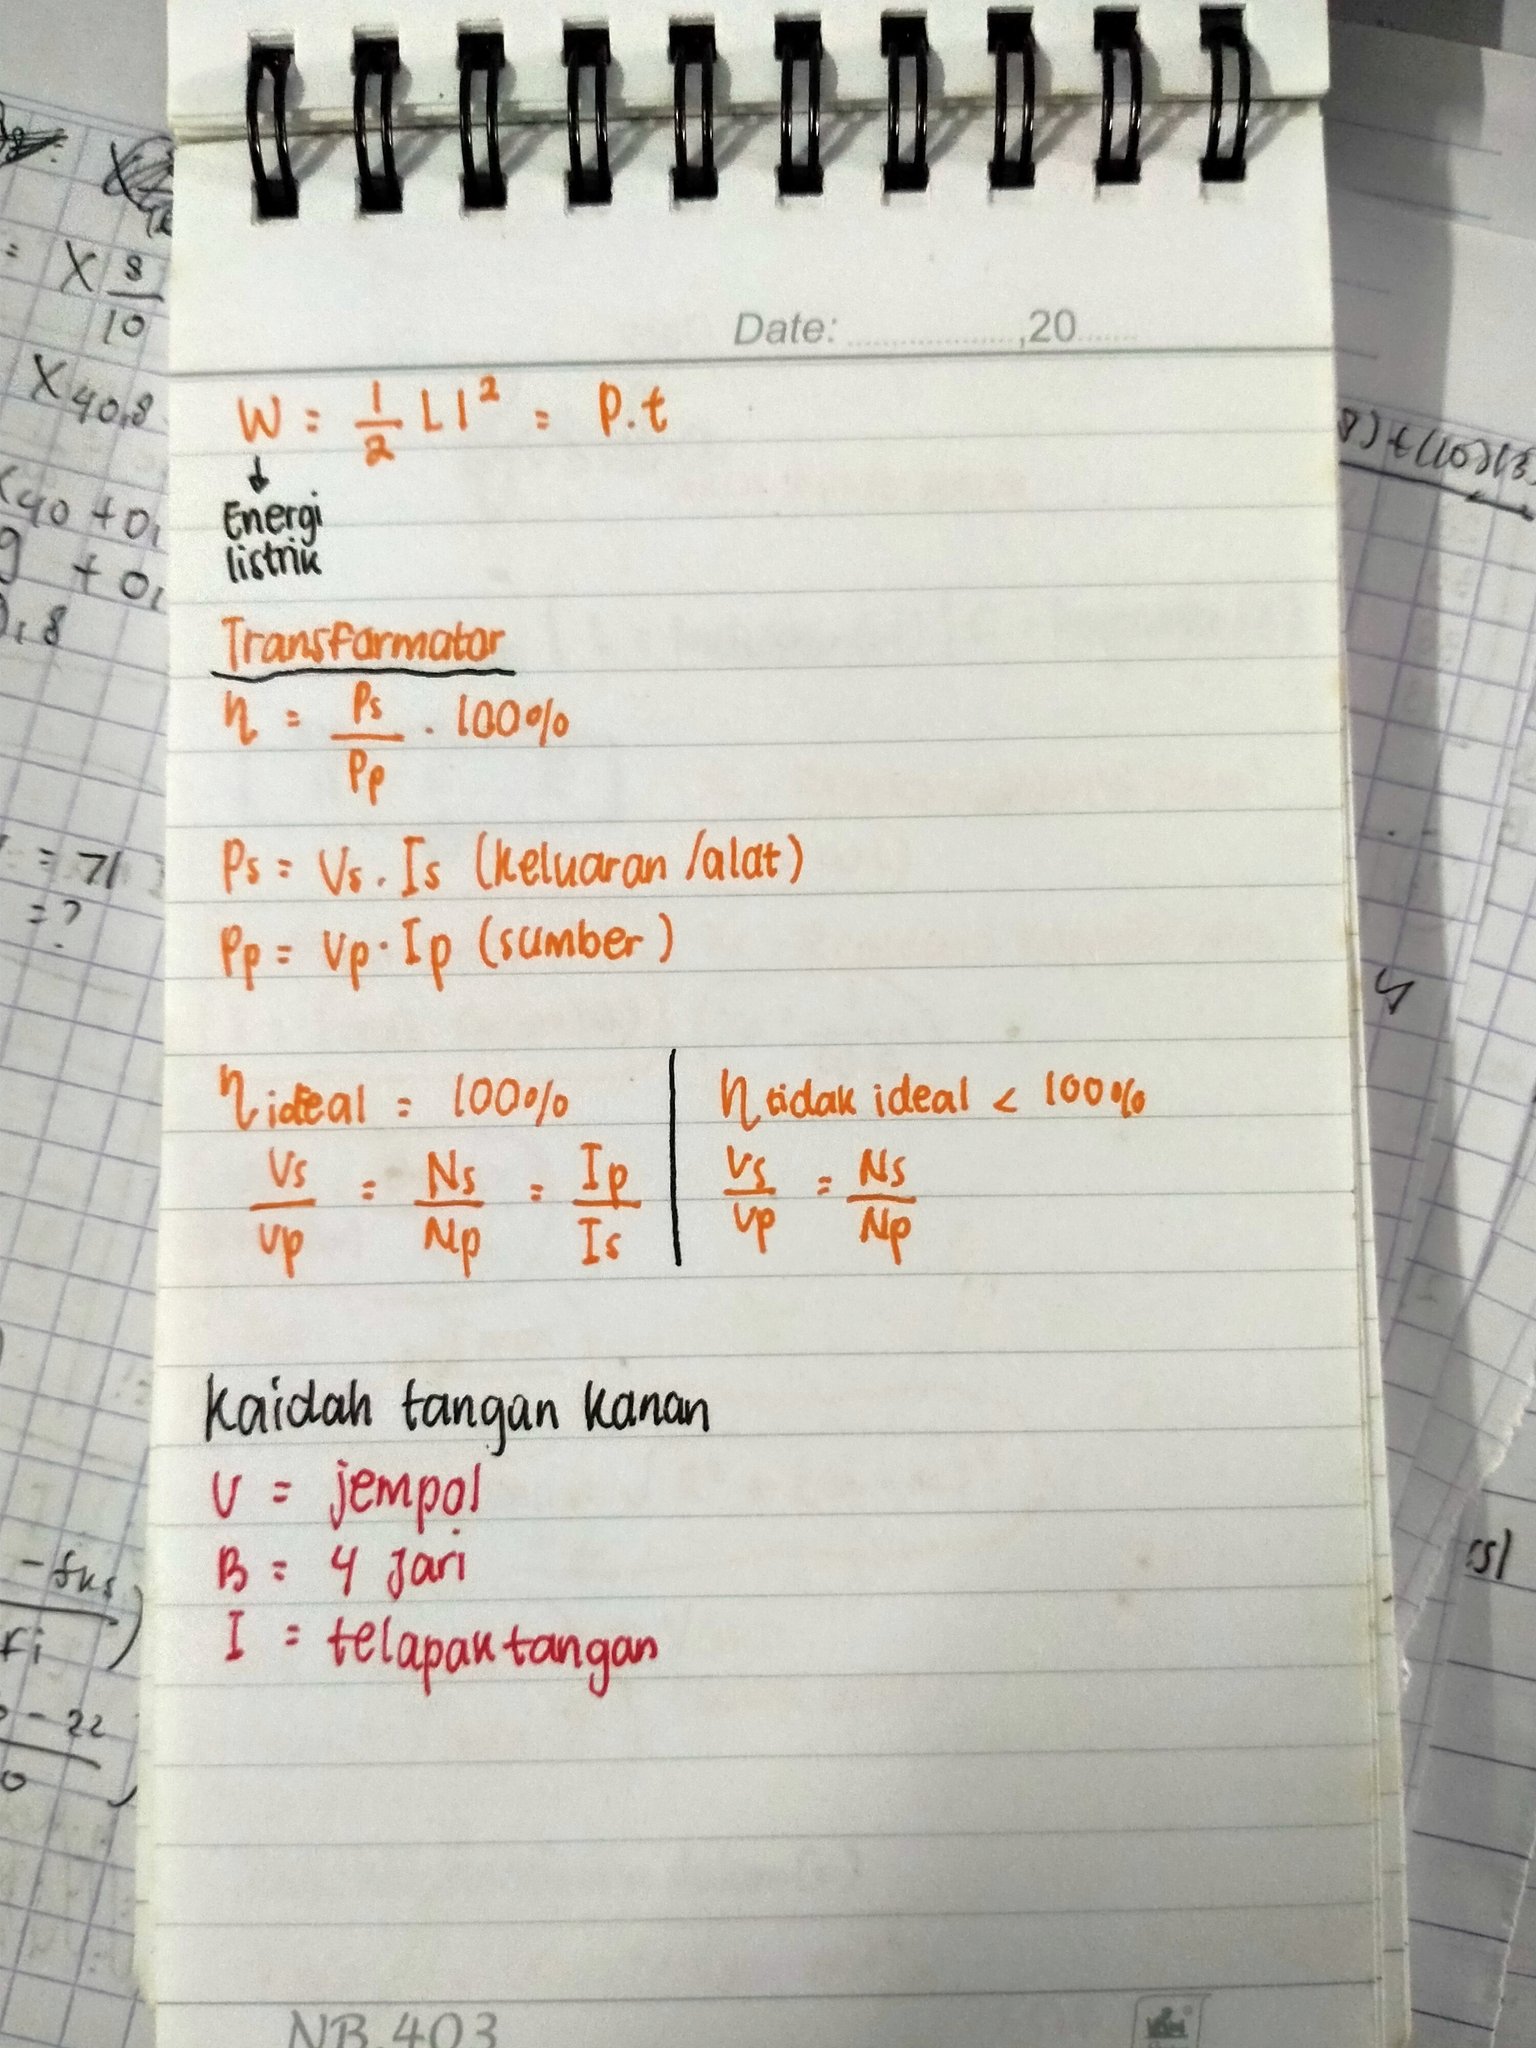 Date: ..................,20.......
W = 1/2 L I² = P.t
↓
Energi
listrik
Transformator
η = Ps/Pp . 100%
Ps = Vs . Is (keluaran /alat)
Pp = Vp . Ip (sumber)
η ideal = 100%
Vs/Vp = Ns/Np = Ip/Is
η tidak ideal < 100%
Vs/Vp = Ns/Np
Kaidah tangan kanan
V = jempol
B = 4 Jari
I = telapak tangan
NB.403
= X 8/10
X 40,8
X 40 + 0,
9 + 0,
0,8
= 71
= ?
- fks
ri
- 22
0